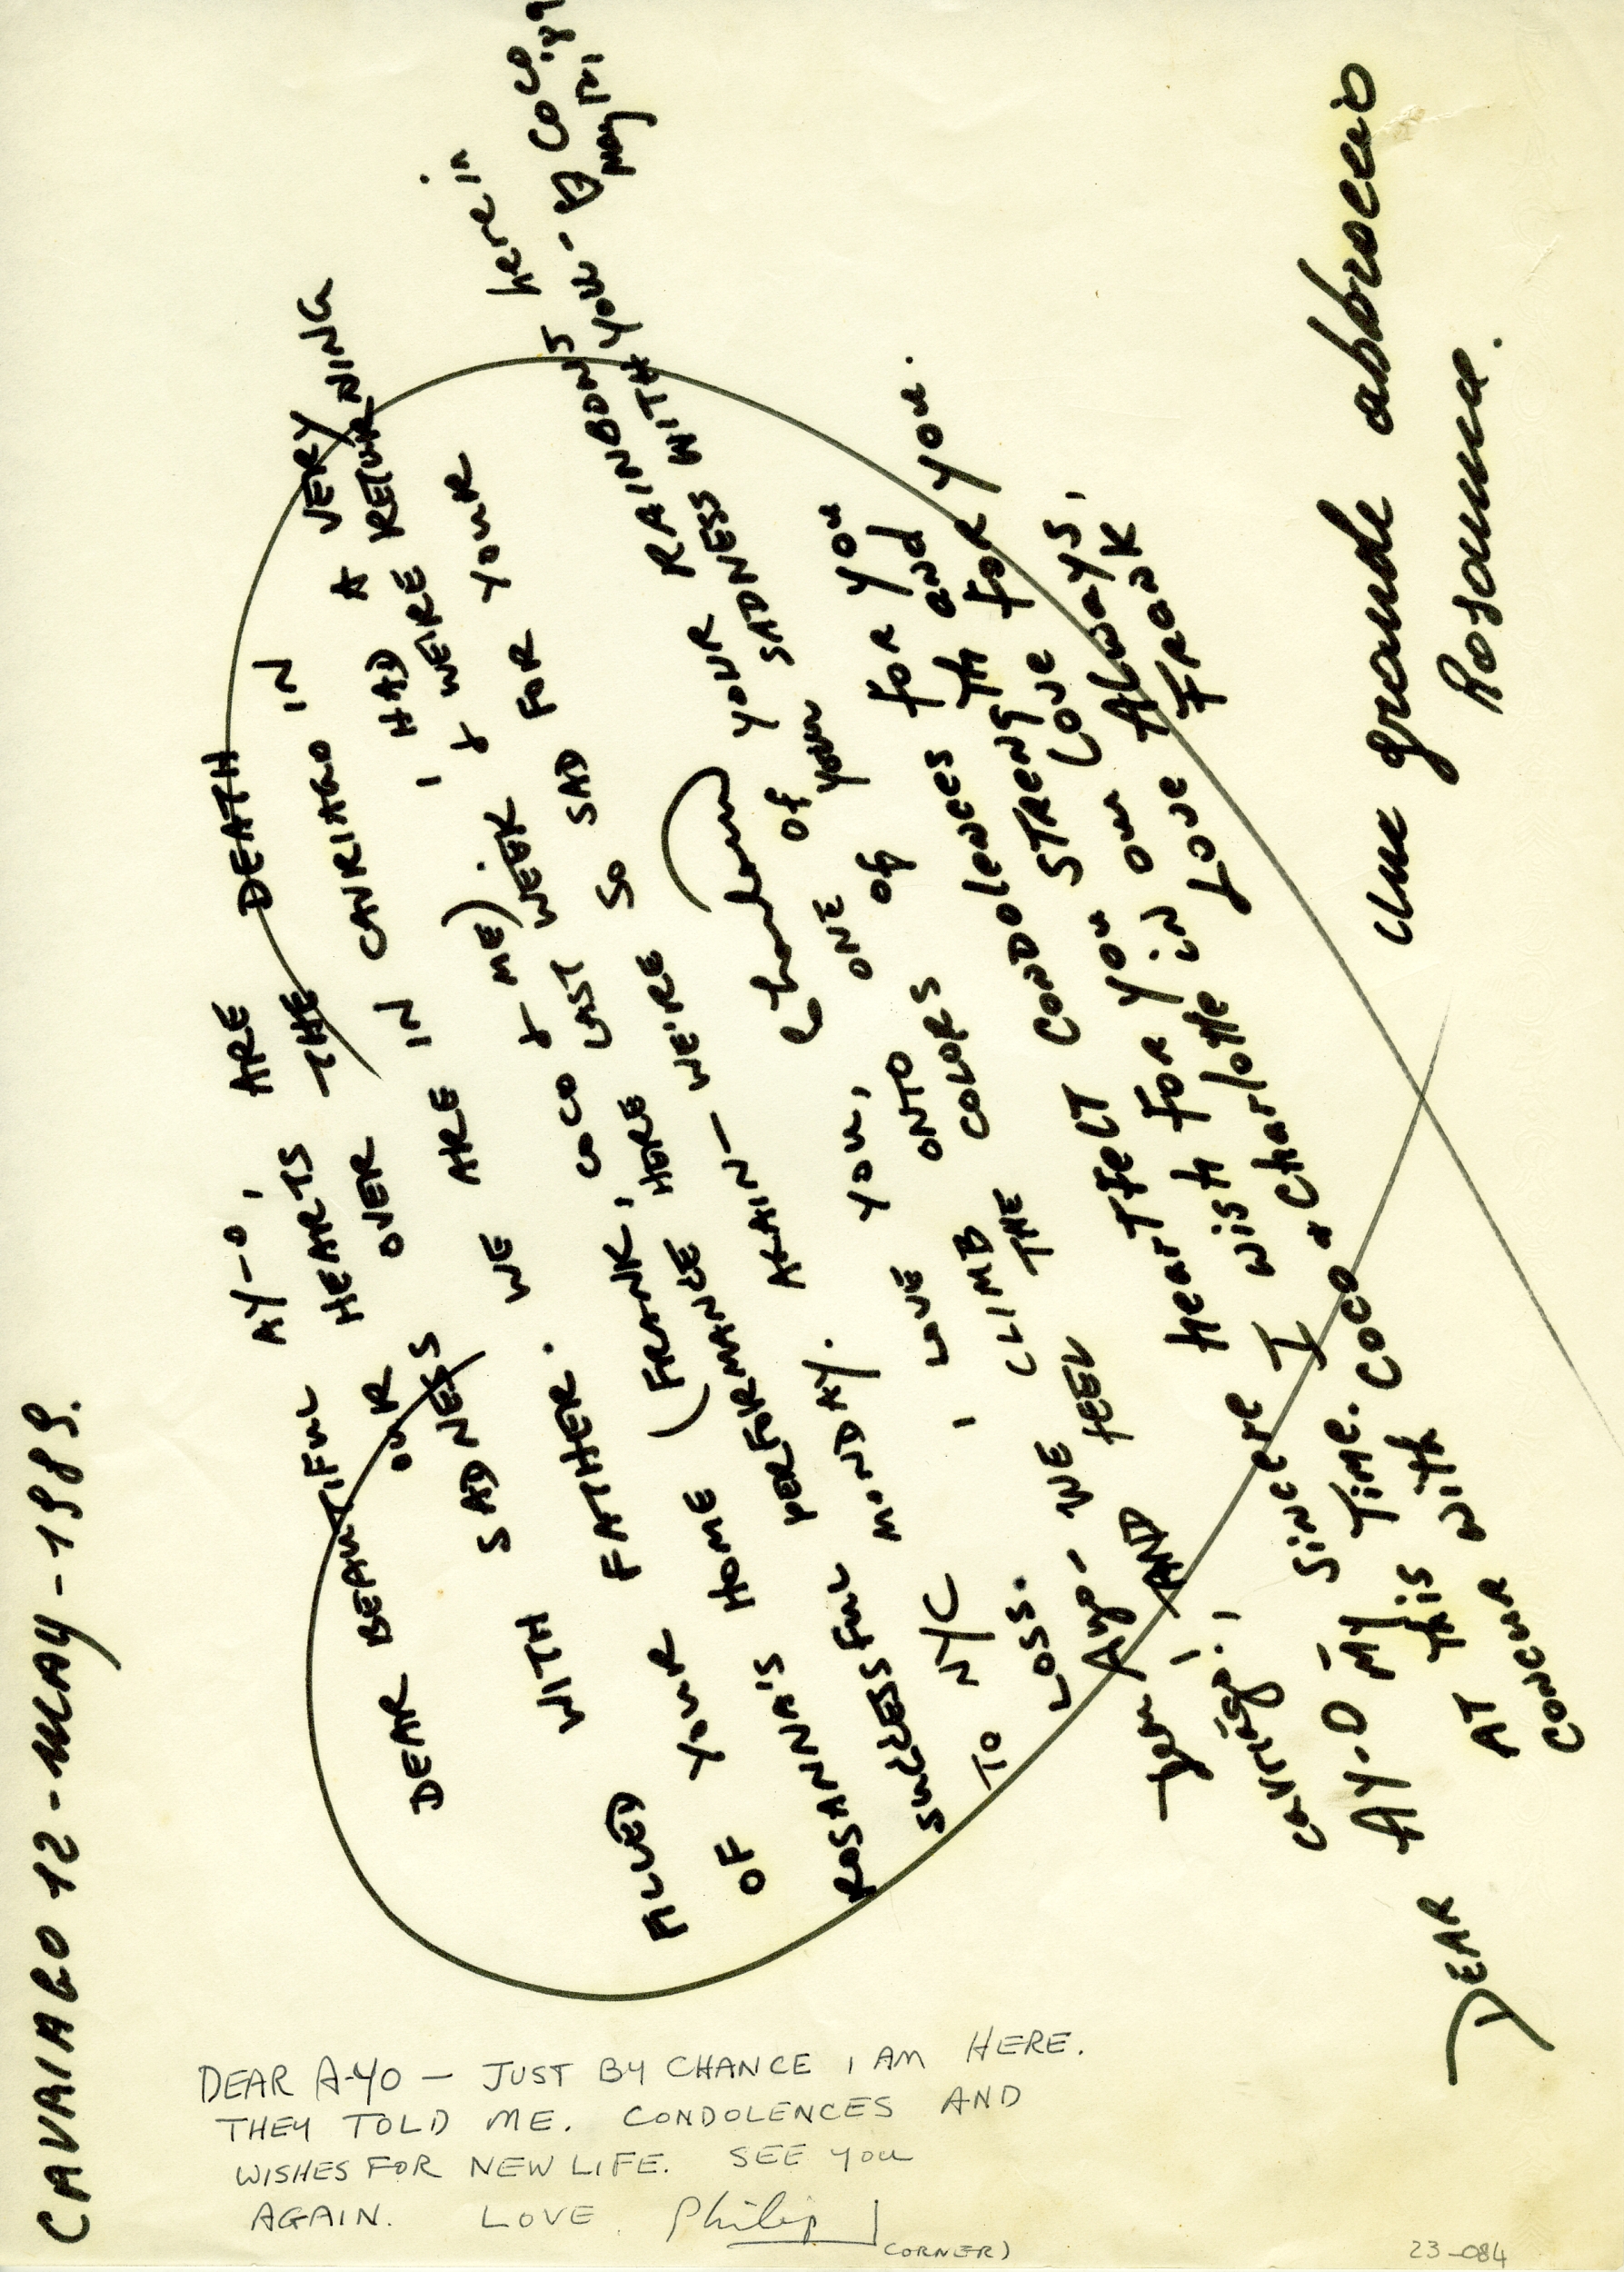 CAVRIAGO 12-MAY-1989.
DEAR BEAUTIFUL AY-O,
OUR HEARTS ARE
FILLED WITH SADNESS OVER THE DEATH
OF YOUR FATHER. WE ARE IN CAVRIAGO IN
ROSANNA'S HOME (FRANK, COCO & ME). I HAD A VERY
SUCCESSFUL PERFORMANCE HERE LAST WEEK & WE'RE RETURNING
TO NYC MONDAY. AGAIN - WE'RE SO SAD FOR YOUR
LOSS. I LOVE YOU, Charlotte
Ayo- WE CLIMB ONTO ONE OF YOUR RAINBOWS here in
cavriago! AND FEEL THE COLORS OF YOUR SADNESS WITH YOU - Coco
DEAR AY-O MY sincere heartfelt condolences for you
AT this time. I wish for you strength and
concur with coco & Charlotte in our love for you.
Love Always,
Frank
un grande abbraccio
Rosanna.
DEAR A-YO — JUST BY CHANCE I AM HERE.
THEY TOLD ME. CONDOLENCES AND
WISHES FOR NEW LIFE. SEE YOU
AGAIN. LOVE, Philip
CORNER)
23-084